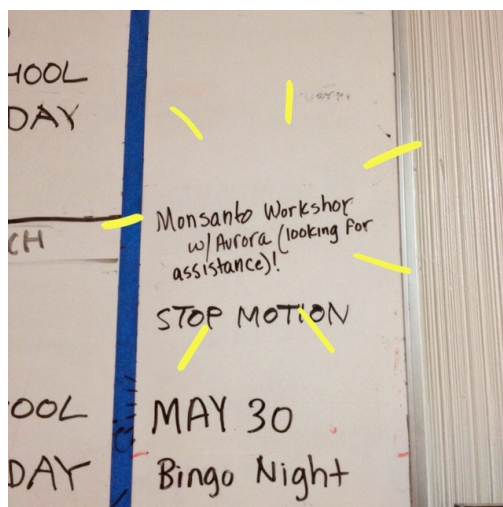 HOOL
DAY
CH
Monsanto Workshop
w/ Aurora (looking for
assistance)!
STOP MOTION
OOL
DAY
MAY 30
Bingo Night